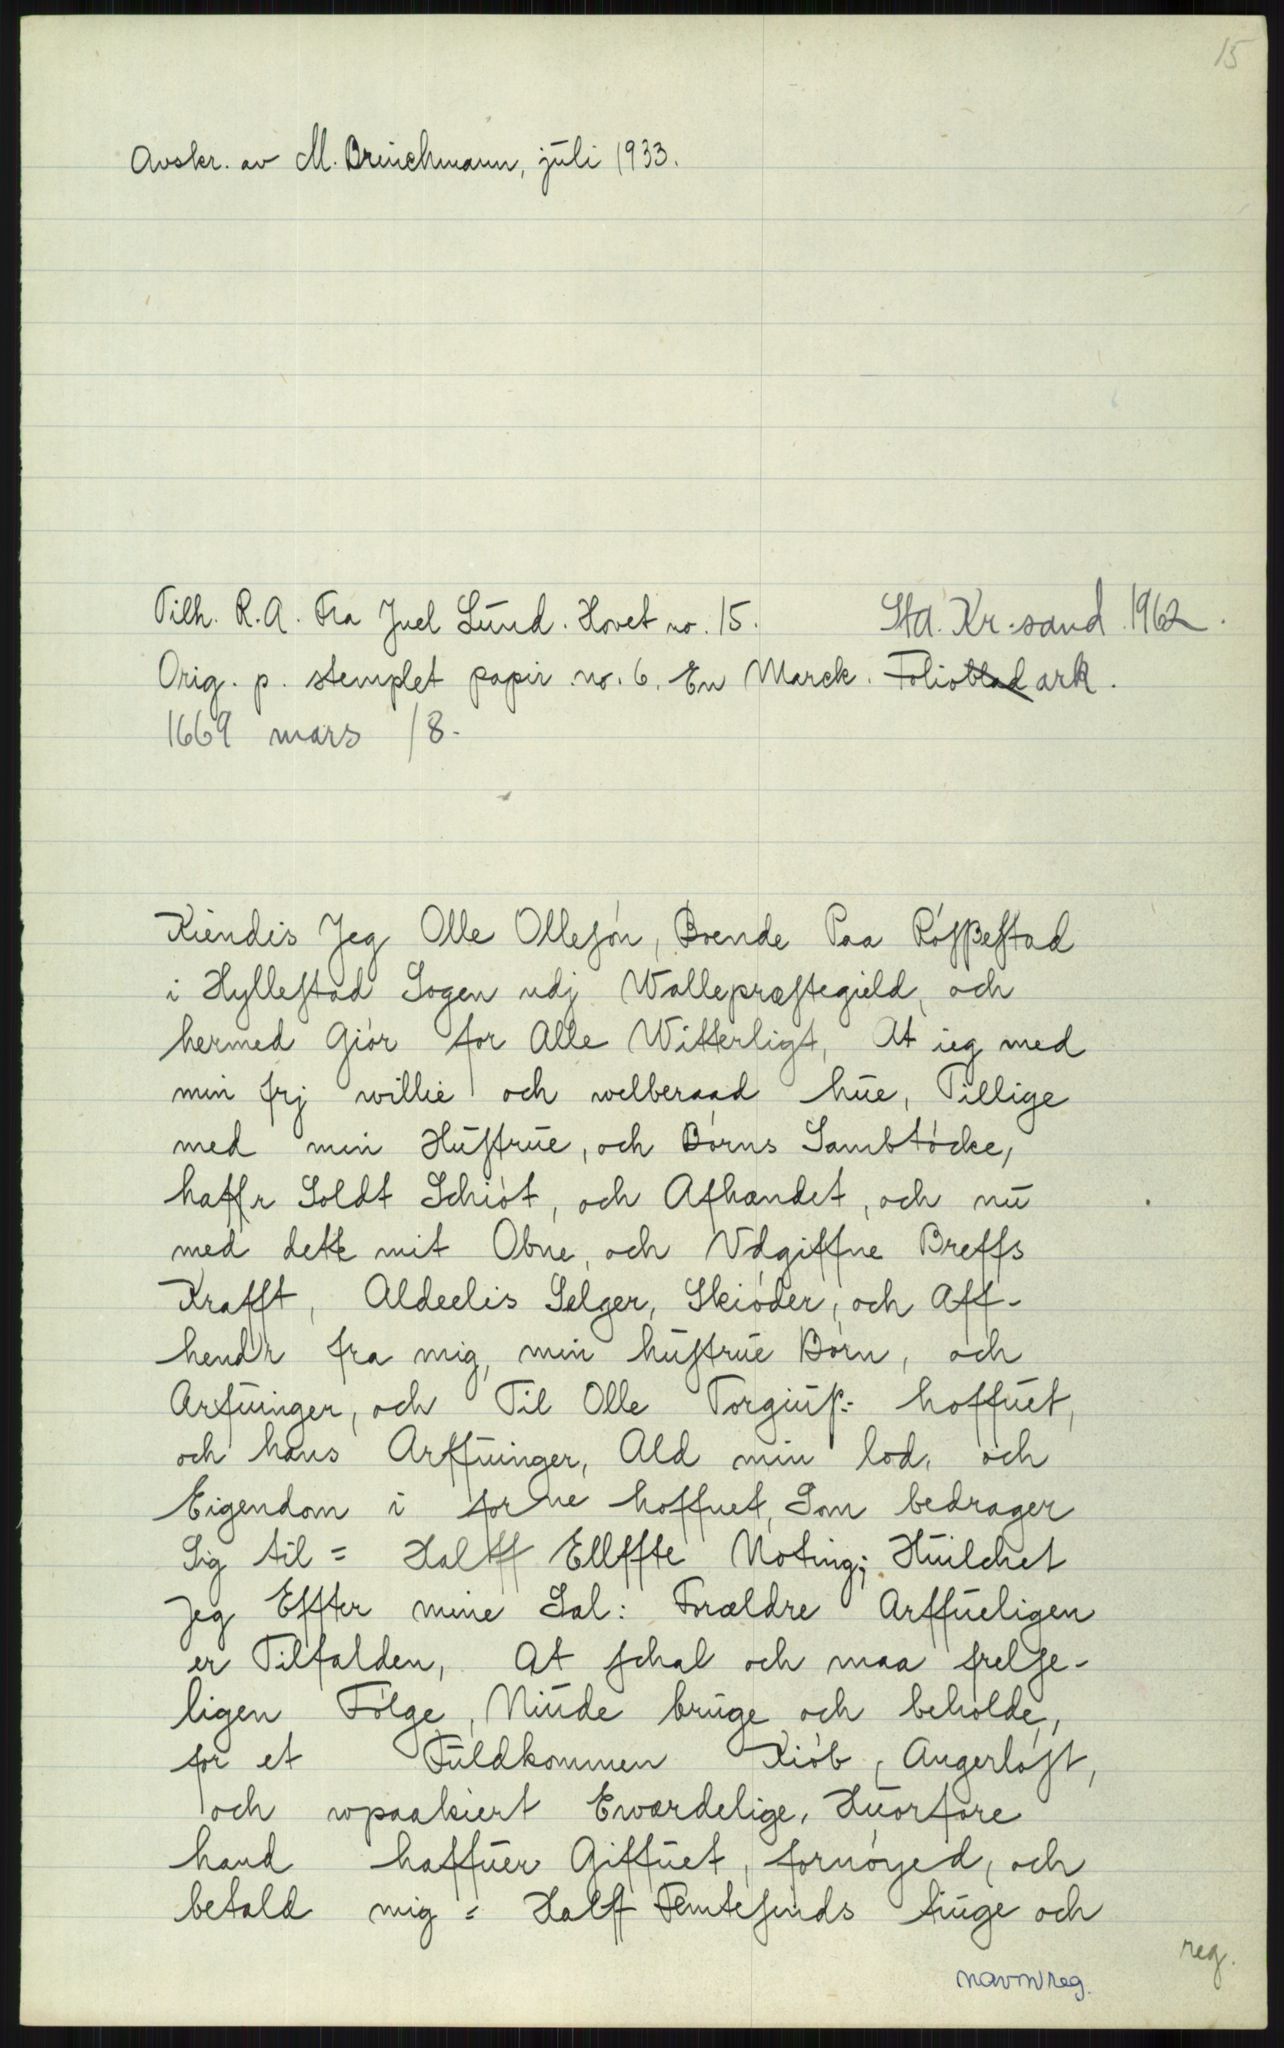 15
Avskr. av M. Brinchmann, juli 1933.
Tilh. R.A. Fra Juel Lund. Hovet no. 15. StA. Kr.sand. 1962.
Orig. p. stemplet papir no. 6. En Marck. Folioblad ark.
1669 mars 18.
Kiendis Jeg Olle Ollesón, Boende Paa Rósßestad
i Hyllestad Sogen udj Wallepræstegield, och
hermed Giór for Alle Witterligt, At ieg med
min frj willie och welberaad hue, Tillige
med min Hustrue, och Bórns Sambtócke,
haffr Soldt Schiót, och Afhændet, och nu
med dette mit Obne, och Vdgiffne Breffs
Krafft, Aldeelis Selger, Skióder, och Aff-
hendr fra mig, min hustrue Bórn, och
Arfuinger, och Til Olle Torgiuß: hoffuet,
och hans Arffuinger, Ald min lod, och
Eigendom i forne hoffuet, Som bedrager
Sig til = Halff Ellffte Noting; Huilchet
Jeg Effter mine Sal: Forældre Arffueligen
er Tilfalden, At schal och maa frelse-
ligen Fólge, Niude bruge och beholde,
for et Fuldkommen Kiób, Angerlóst,
och wpaakiert Ewærdelige, Huorfore
hand haffuer Giffuet, fornóyed, och
betald mig = Halff Femtesinds tiuge och
reg.
navnreg.